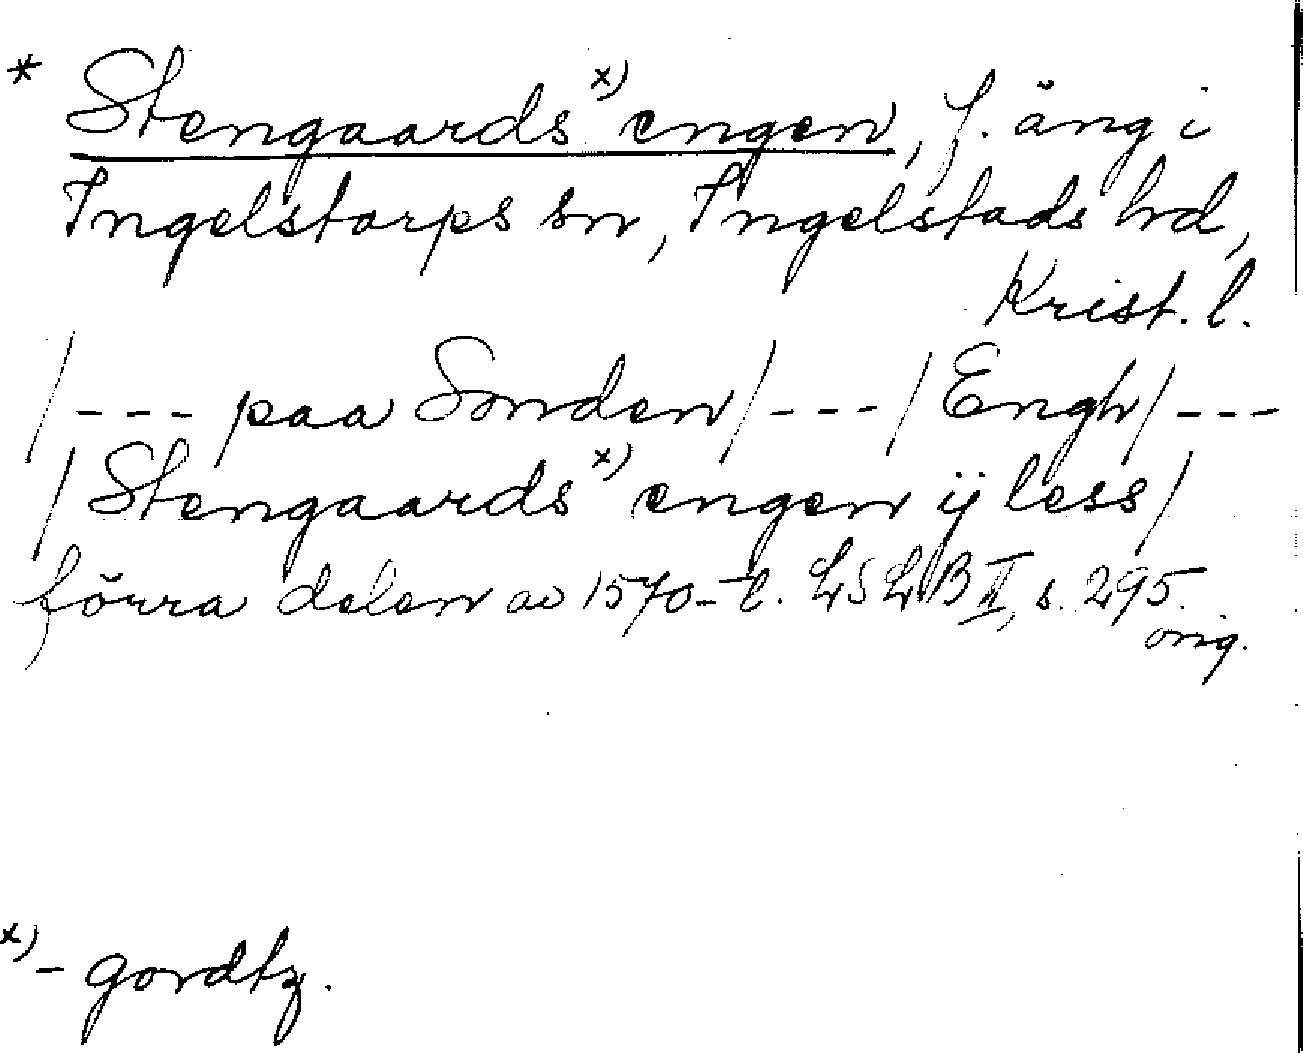 * Stengaards x) engen, f. äng i
Ingelstorps sn, Ingelstads hd,
Krist. l.
/--- paa Sønden/---/Engh/---
/Stengaards x) engen ij less/
förra delen av 1570-t. LSLB II, s. 295.
orig.
x) - gordtz.